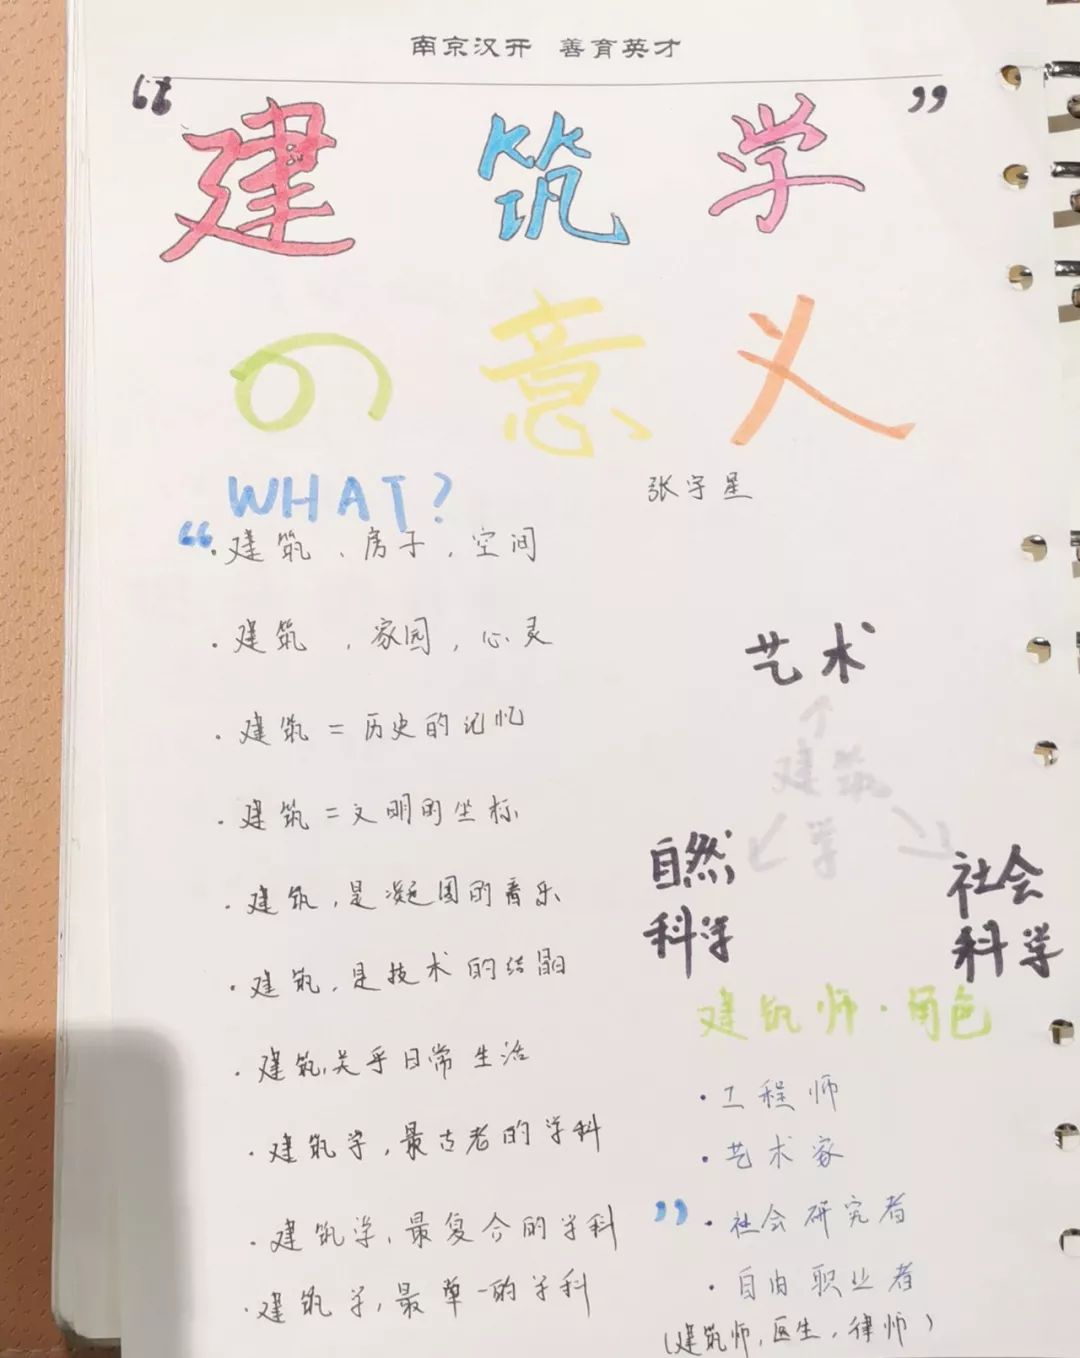 南京汉开 善育英才
“建筑学”
の意义
WHAT?
张宇星
“
· 建筑、房子，空间
· 建筑，家园，心灵
· 建筑 = 历史的记忆
· 建筑 = 文明的坐标
· 建筑，是凝固的音乐
· 建筑，是技术的结晶
· 建筑，关乎日常生活
· 建筑学，最古老的学科
· 建筑学，最复合的学科
· 建筑学，最单一的学科
艺术
↑
建筑
学
↙ ↘
自然
科学
社会
科学
建筑师·角色
· 工程师
· 艺术家
” · 社会研究者
· 自由职业者
(建筑师，医生，律师)